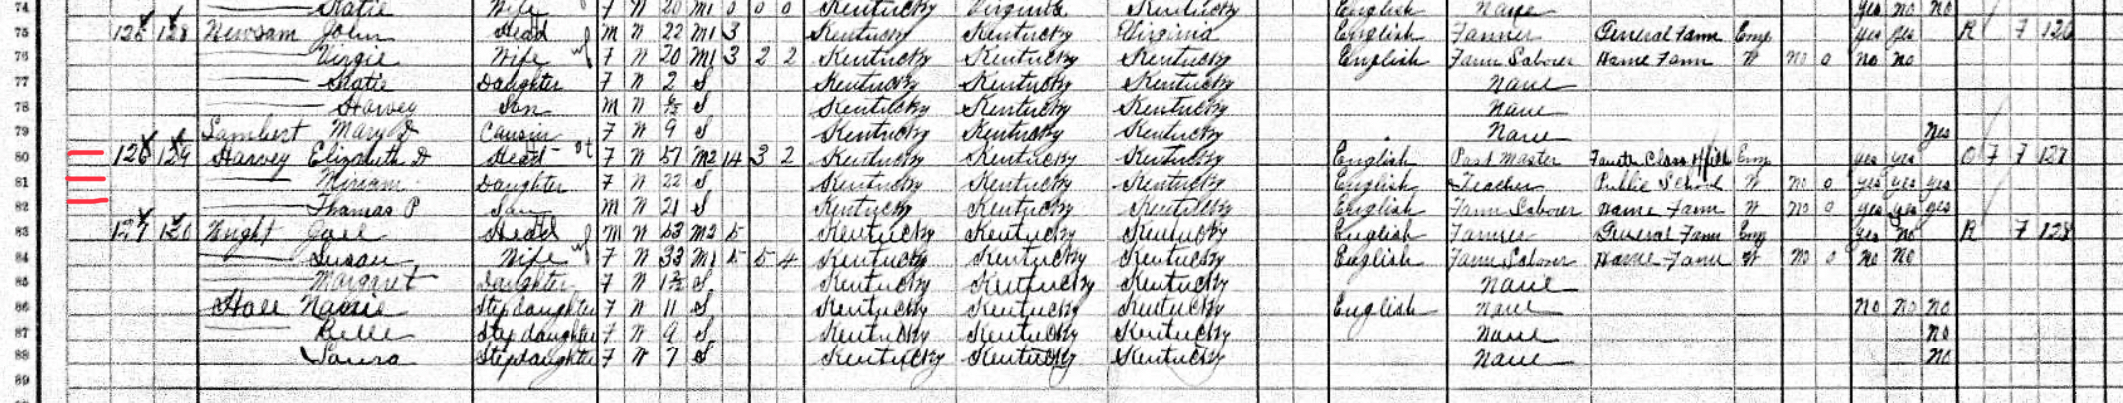 74 Katie Wife F W 20 M1 0 0 0 Kentucky Virginia Kentucky English None Yes no no
75 125 128 Newsom John Head M W 22 M1 3 Kentucky Kentucky Virginia English Farmer General Farm Emp Yes Yes R F 126
76 Virgie Wife F W 20 M1 3 2 2 Kentucky Kentucky Kentucky English Farm Laborer Home Farm W no 0 no no
77 Katie Daughter F W 2 S Kentucky Kentucky Kentucky None
78 Harvey Son M W S Kentucky Kentucky Kentucky None
79 Lambert Mary D Cousin F W 9 S Kentucky Kentucky Kentucky None Yes
80 126 129 Harvey Elizabeth D Head F W 57 M2 14 3 2 Kentucky Kentucky Kentucky English Post Master Fourth Class Office Emp yes yes O F F 127
81 Miriam Daughter F W 22 S Kentucky Kentucky Kentucky English Teacher Public School W no 0 yes yes yes
82 Thomas P Son M W 21 S Kentucky Kentucky Kentucky English Farm Laborer Home Farm W no 0 yes yes yes
83 127 130 Wright Joel Head M W 53 M2 5 Kentucky Kentucky Kentucky English Farmer General Farm Emp yes no R F 128
84 Susan Wife F W 33 M1 5 5 4 Kentucky Kentucky Kentucky English Farm Laborer Home Farm W no 0 no no
85 Margaret Daughter F W S Kentucky Kentucky Kentucky None
86 Hall Step daughter F W 11 S Kentucky Kentucky Kentucky English None no no no
87 Belle Step daughter F W 9 S Kentucky Kentucky Kentucky None no
88 Laura Step daughter F W 7 S Kentucky Kentucky Kentucky None no
89